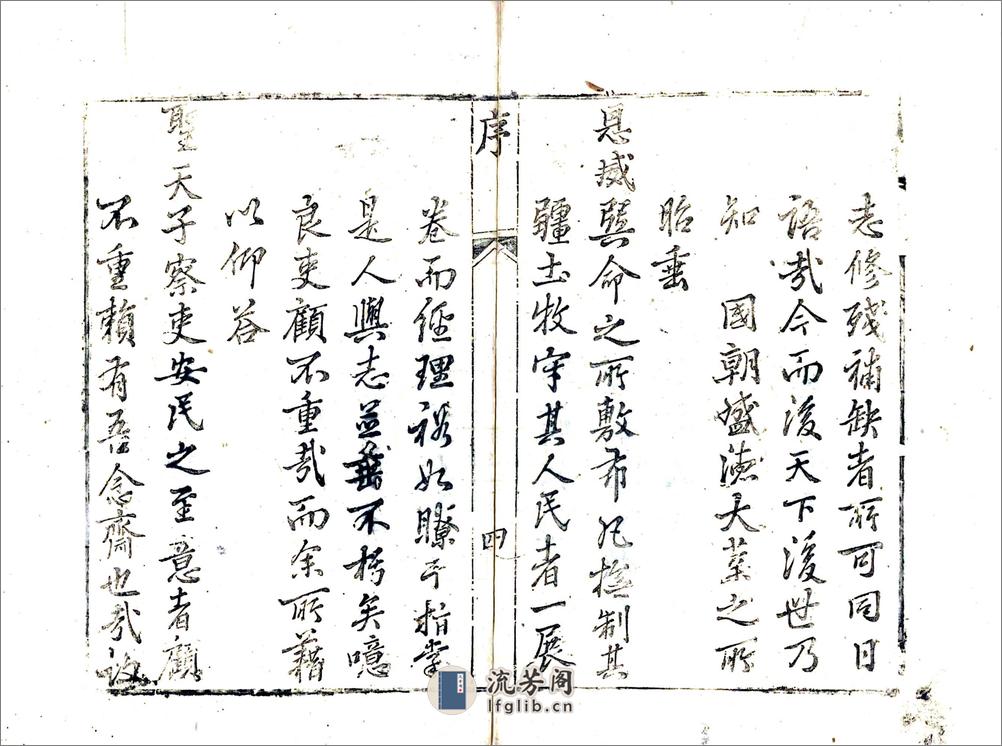 志修殘補缺者所可同日
語哉今而後天下後世乃
知　國朝盛德大業之所
昭垂
恩威巽命之所敷布凡撫制其
疆土牧宰其人民者一展
序
四
卷而經理裕如瞭乎指掌
是人與志並垂不朽矣噫
良吏顧不重哉而余所藉
以仰荅
聖天子察吏安民之至意者顧
不重賴有吾念齋也哉故
流芳阁
lfglib.cn